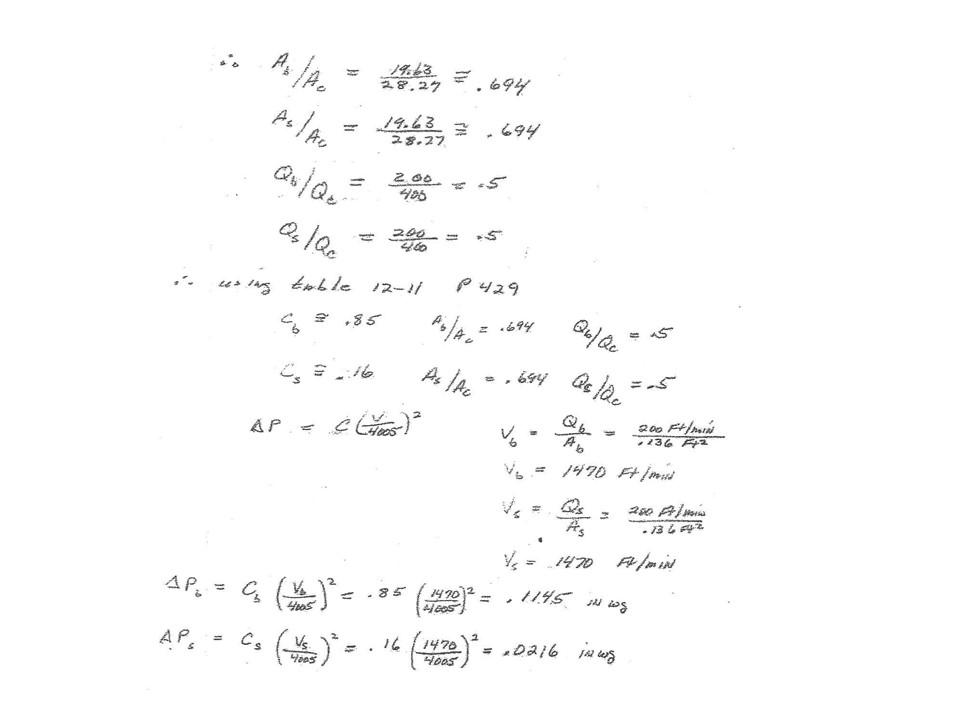 ∴ A_b/A_c = 19.63/28.27 ≅ .694
A_s/A_c = 19.63/28.27 ≅ .694
Q_b/Q_c = 200/400 = .5
Q_s/Q_c = 200/400 = .5
∴ using table 12-11 P 429
C_b ≅ .85 A_b/A_c = .694 Q_b/Q_c = .5
C_s ≅ .16 A_s/A_c = .694 Q_s/Q_c = .5
ΔP = C(V/4005)² V_b = Q_b/A_b = 200 Ft/min/.136 Ft²
V_b = 1470 Ft/min
V_s = Q_s/A_s = 200 Ft/min/.136 Ft²
V_s = 1470 Ft/min
ΔP_b = C_b (V_b/4005)² = .85 (1470/4005)² = .1145 in wg
ΔP_s = C_s (V_s/4005)² = .16 (1470/4005)² = .0216 in wg